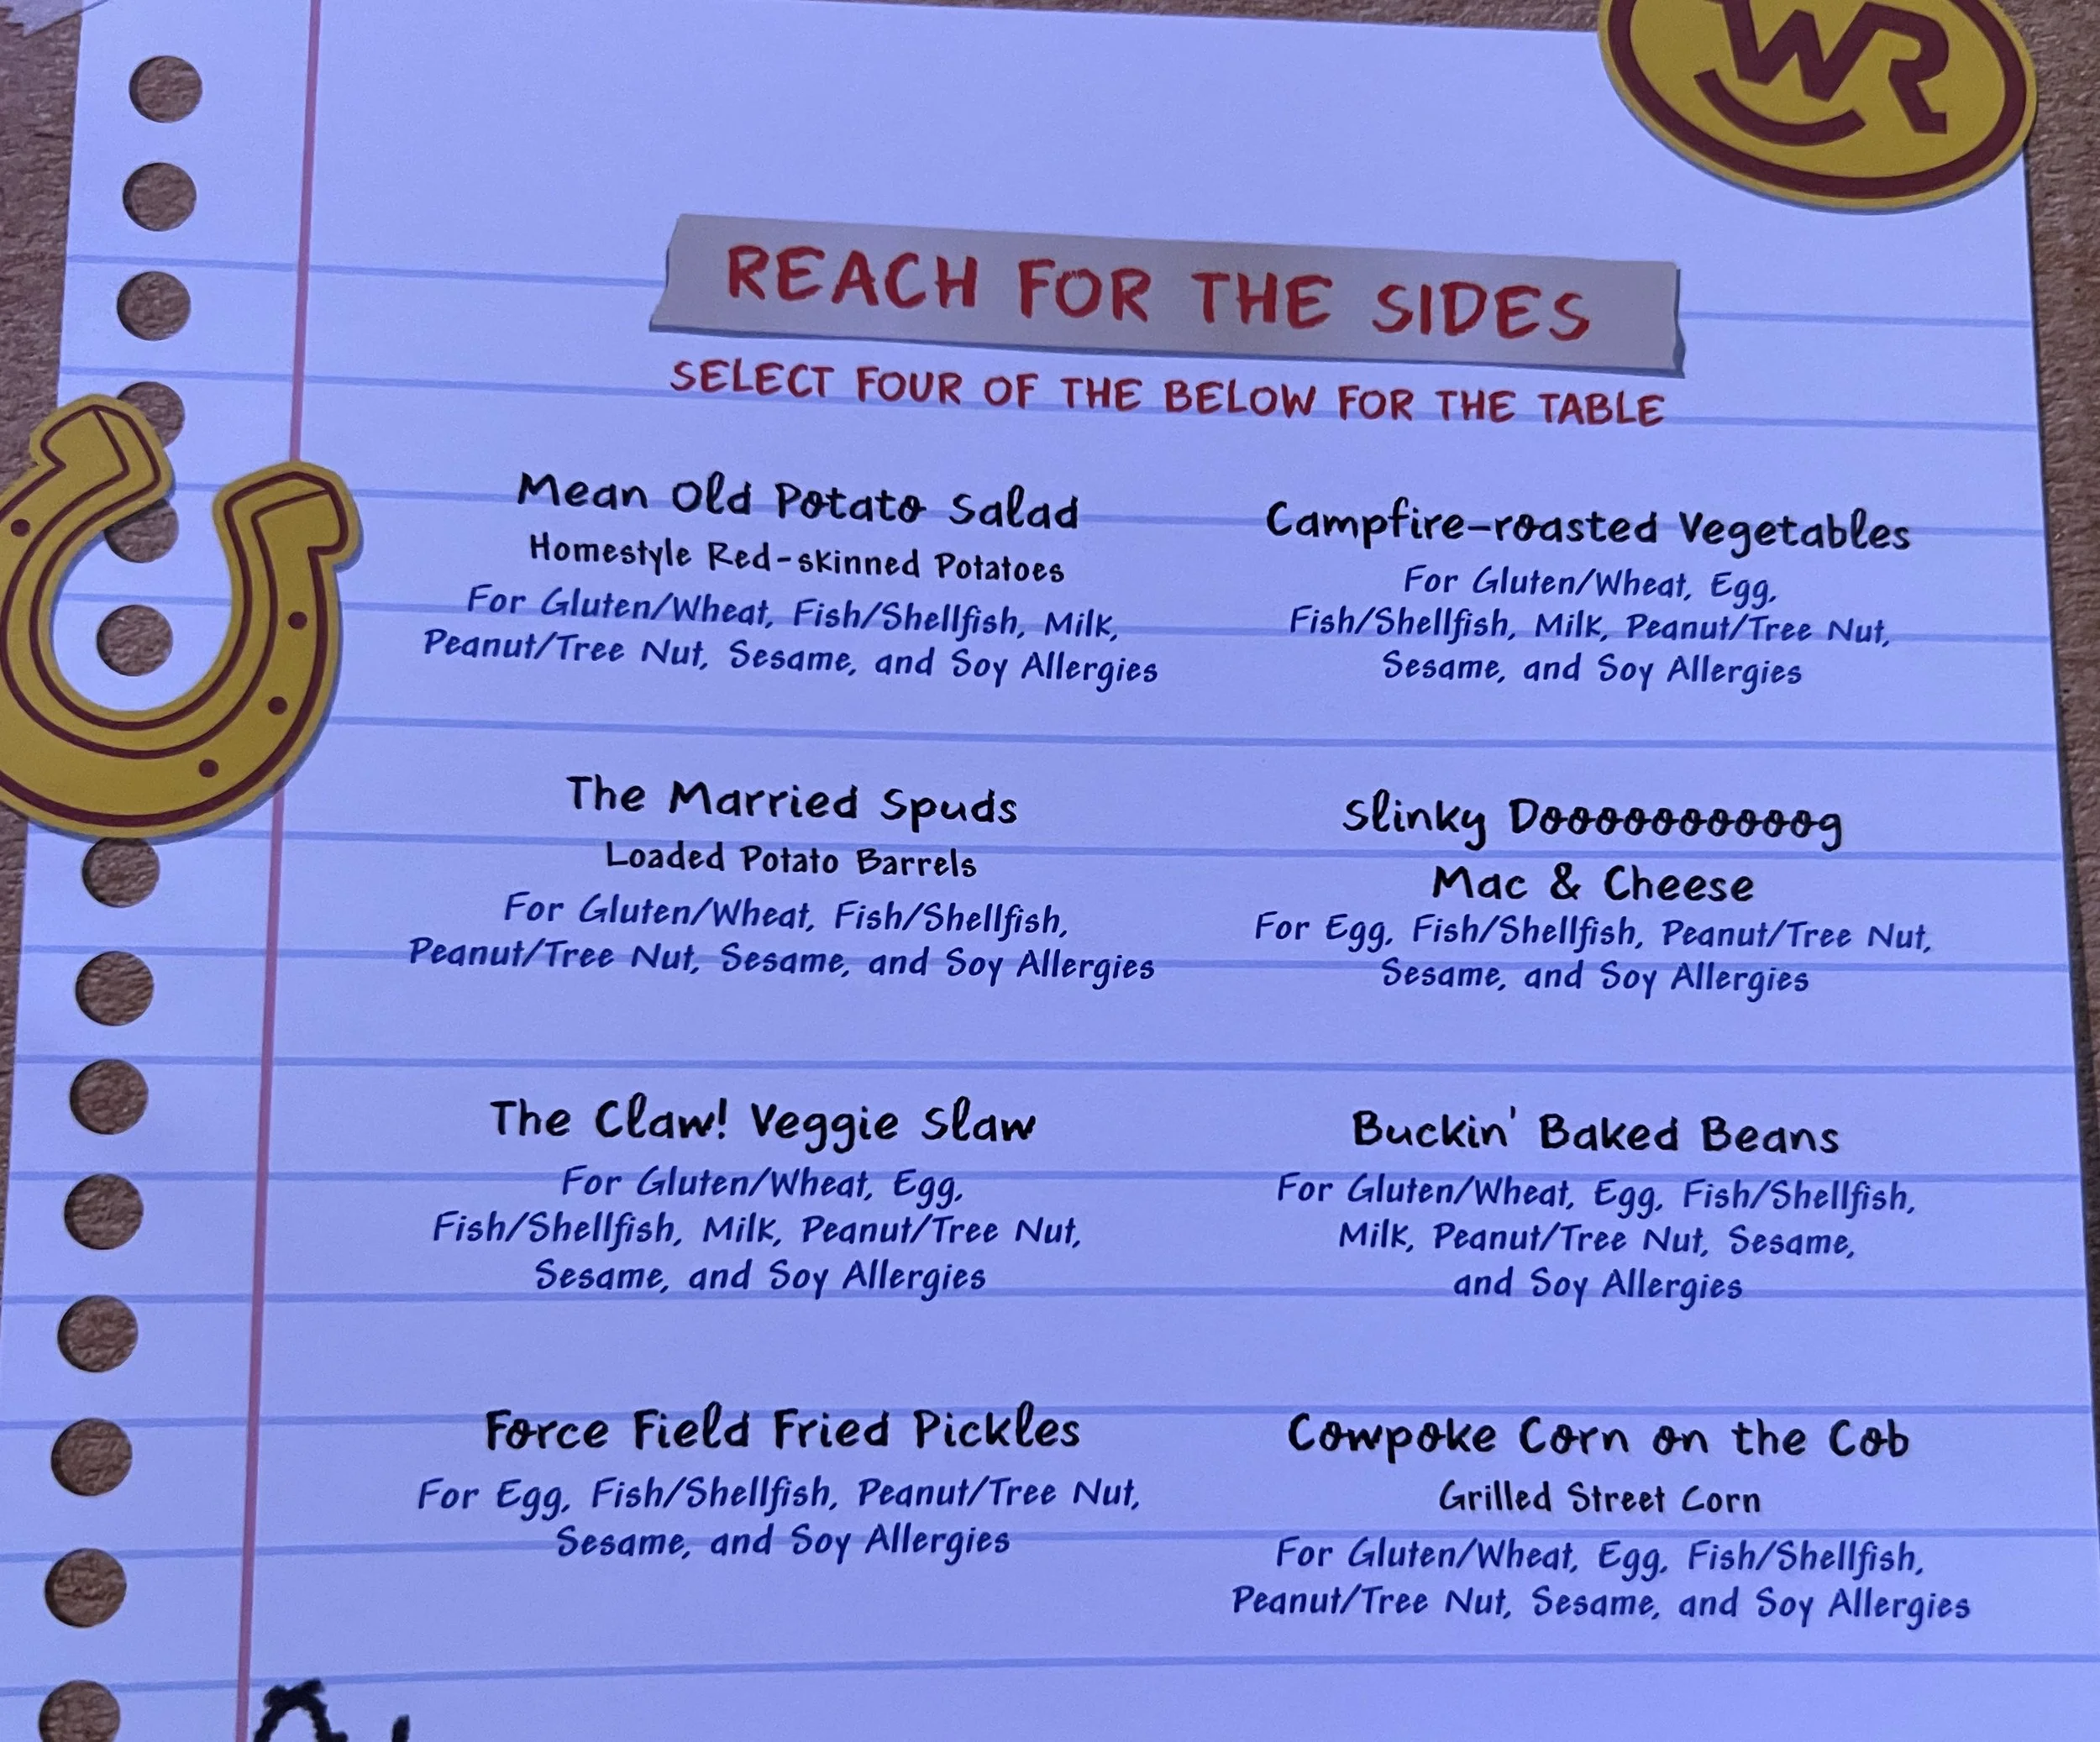 WR
REACH FOR THE SIDES
SELECT FOUR OF THE BELOW FOR THE TABLE
Mean Old Potato Salad
Homestyle Red-skinned Potatoes
For Gluten/Wheat, Fish/Shellfish, Milk,
Peanut/Tree Nut, Sesame, and Soy Allergies
Campfire-roasted Vegetables
For Gluten/Wheat, Egg,
Fish/Shellfish, Milk, Peanut/Tree Nut,
Sesame, and Soy Allergies
The Married Spuds
Loaded Potato Barrels
For Gluten/Wheat, Fish/Shellfish,
Peanut/Tree Nut, Sesame, and Soy Allergies
Slinky Dooooooooooog
Mac & Cheese
For Egg, Fish/Shellfish, Peanut/Tree Nut,
Sesame, and Soy Allergies
The Claw! Veggie Slaw
For Gluten/Wheat, Egg,
Fish/Shellfish, Milk, Peanut/Tree Nut,
Sesame, and Soy Allergies
Buckin' Baked Beans
For Gluten/Wheat, Egg, Fish/Shellfish,
Milk, Peanut/Tree Nut, Sesame,
and Soy Allergies
Force Field Fried Pickles
For Egg, Fish/Shellfish, Peanut/Tree Nut,
Sesame, and Soy Allergies
Cowpoke Corn on the Cob
Grilled Street Corn
For Gluten/Wheat, Egg, Fish/Shellfish,
Peanut/Tree Nut, Sesame, and Soy Allergies